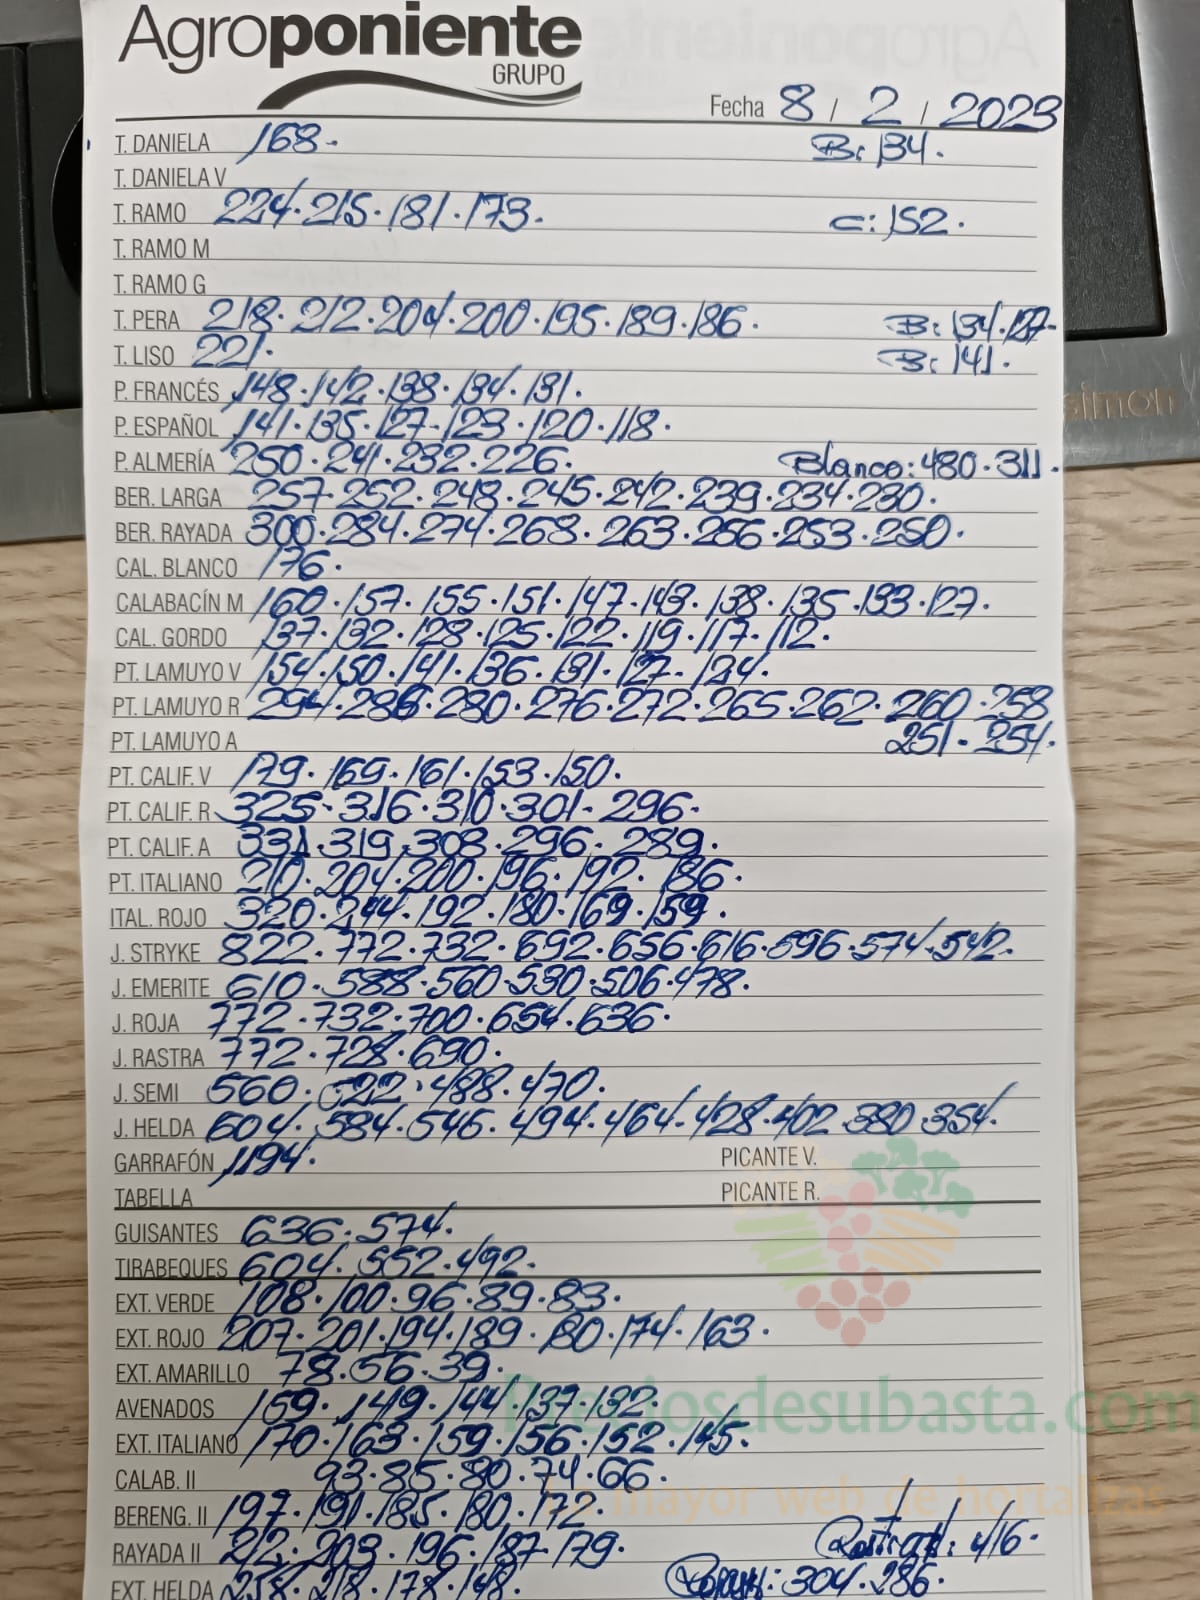 Agroponiente
GRUPO
Fecha 8 / 2 / 2023
T. DANIELA 168. B: 134.
T. DANIELA V
T. RAMO 224.215.181.173. C: 152.
T. RAMO M
T. RAMO G
T. PERA 218.212.204.200.195.189.186. B: 134.127-
T. LISO 221. B: 141.
P. FRANCÉS 148.142.138.134.131.
P. ESPAÑOL 141.135.127-123.120.118.
P. ALMERÍA 250.241.232.226. Blanco: 480.311.
BER. LARGA 257.252.248.245.242.239.234.230.
BER. RAYADA 300.284.274.268.263.256.253.250.
CAL. BLANCO 176.
CALABACÍN M 160.157.155.151.147.143.138.135.133.127.
CAL. GORDO 137.132.128.125.122.119.117.112.
PT. LAMUYO V 154.150.141.136.131.127-124.
PT. LAMUYO R 294.286.280.276.272.265.262.260.258
PT. LAMUYO A 251.254.
PT. CALIF. V 179.169.161.153.150.
PT. CALIF. R 325.316.310.301-296.
PT. CALIF. A 331.319.308.296.289.
PT. ITALIANO 210.204.200.196.192.186.
ITAL. ROJO 320.244.192.180.169.159.
J. STRYKE 822.772.732.692.656.616.596.574.542.
J. EMERITE 610.588.560.530.506.478.
J. ROJA 772.732.700.654.636.
J. RASTRA 772.728.690.
J. SEMI 560.522.488.470.
J. HELDA 604.584.546.494.464.428.402.380.354.
GARRAFÓN 1194. PICANTE V.
TABELLA PICANTE R.
GUISANTES 636.574.
TIRABEQUES 604.552.492.
EXT. VERDE 108.100.96.89.83.
EXT. ROJO 207.201.194.189.180.174.163.
EXT. AMARILLO 78.56.39.
AVENADOS 159.149.144.137.132.
Preciosdesubasta.com
EXT. ITALIANO 170.163.159.156.152.145.
CALAB. II 93.85.80.74.66.
mayor web de hortalizas
BERENG. II 197.191.185.180.172.
RAYADA II 212.203.196.187-179. : 416.
EXT. HELDA 238.218.178.148. : 304.286.
simon